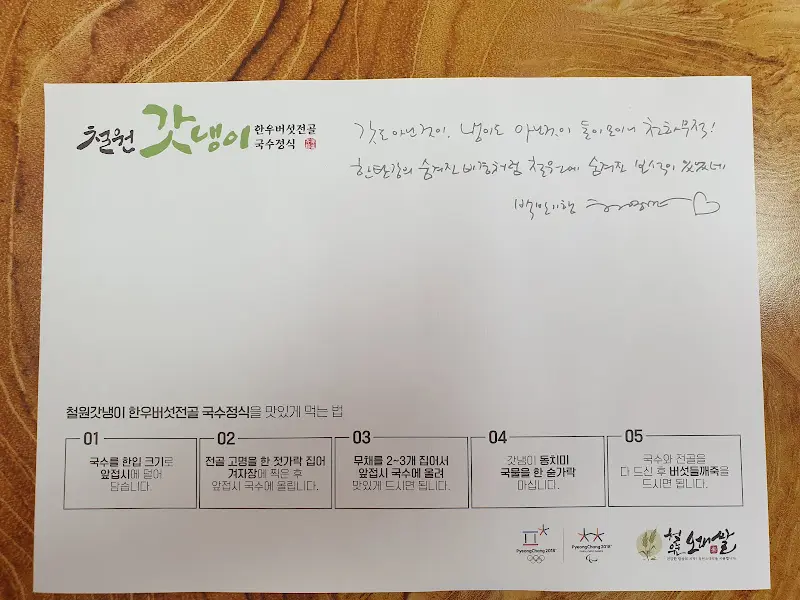 철원 갓냉이 한우버섯전골
국수정식
갓도 아닌것이, 냉이도 아닌것이 둘이 모이니 천하무적!
한탄강의 숨겨진 비경처럼 철원에 숨겨진 보석이 있었네
백반기행
철원갓냉이 한우버섯전골 국수정식을 맛있게 먹는 법
01
국수를 한입 크기로
앞접시에 덜어
담습니다.
02
전골 고명을 한 젓가락 집어
겨자장에 찍은 후
앞접시 국수에 올립니다.
03
무채를 2~3개 집어서
앞접시 국수에 올려
맛있게 드시면 됩니다.
04
갓냉이 동치미
국물을 한 숟가락
마십니다.
05
국수와 전골을
다 드신 후 버섯들깨죽을
드시면 됩니다.
PyeongChang 2018
PyeongChang 2018
철원 오대쌀